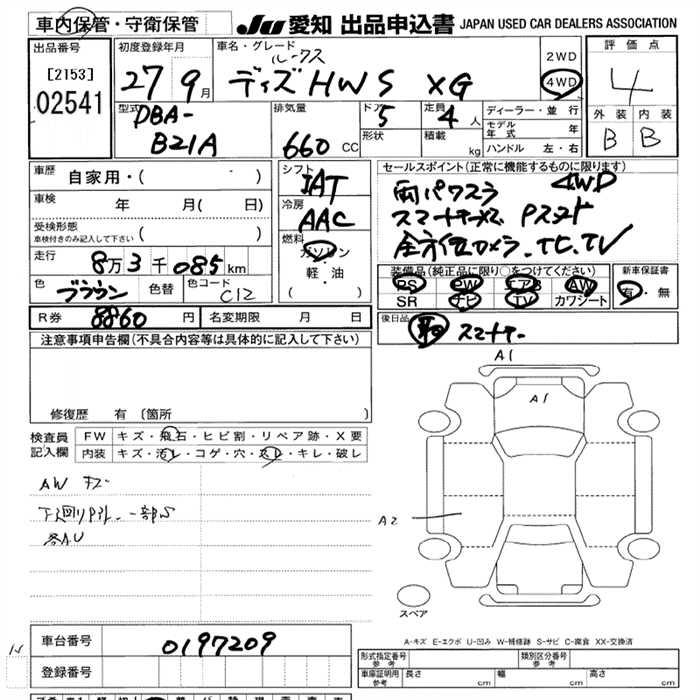 車内保管・守衛保管
JU 愛知 出品申込書 JAPAN USED CAR DEALERS ASSOCIATION
出品番号
[2153]
02541
初度登録年月
27 9月
車名・グレード
ルークス
デイズ HWS XG
2WD
4WD
評価点
4
外装 内装
B B
型式
DBA-
B21A
排気量
660 CC
ドア
5
形状
定員
4人
積載 kg
ディーラー・並行
モデル年式 年
ハンドル 左・右
車歴 自家用・( )
車検 年 月( 日)
受検形態
車検付きのみ記入して下さい ( )
走行
8万3千085km
色 ブラウン 色替 色コード C12
シフト
IAT
冷房
AAC
燃料
ガソリン
軽・油
( )
セールスポイント(正常に機能するものに限ります)
両パワスラ 4WD
スマートキーX2 Pスタート
全方位カメラ. TC, TV
装備品(純正品に限り○をつけてください)
PS PW エアB AW
SR ナビ TV カワシート
新車保証書
有・無
R券 8860円 名変期限 月 日
後日品 取 スマートキー
注意事項申告欄(不具合内容等は具体的に記入して下さい)
修復歴 有 〔箇所 〕
検査員
記入欄
FW キズ・飛石・ヒビ割・リペア跡・X要
内装 キズ・汚レ・コゲ・穴・スレ・キレ・破レ
AW キズ
下廻りサビ. 一部S
各AU
A1
A1
A2
スペア
A-キズ E-エクボ U-凹み W-補修跡 S-サビ C-腐食 XX-交換済
車台番号 0197209
登録番号
形式指定番号
参考
類別区分番号
参考
車庫証明用
参考
長さ cm 幅 cm 高さ cm